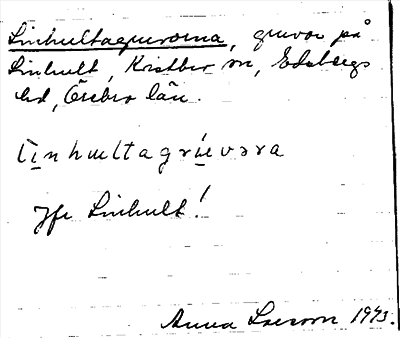 Linhultagruvorna, gruvor på
Linhult, Kristber sn, Edsbergs
hd, Örebro län.
l̀inhultagrúevɘra
Jfr Linhult!
Anna Larsson 1973.